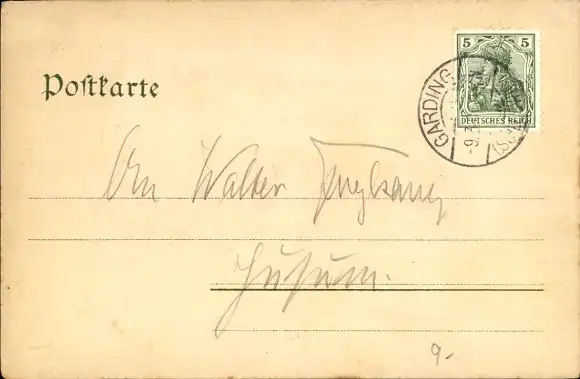 Postkarte
5 5
DEUTSCHES REICH
GARDING
-9.3
An Walter
Husum.
9.-